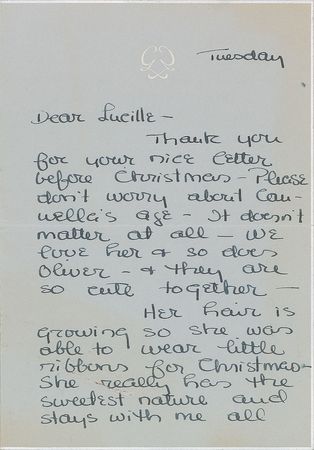 Tuesday
Dear Lucille –
Thank you
for your nice letter
before Christmas – Please
don't worry about Lou-
wella's age – It doesn't
matter at all – We
love her & so does
Oliver – & they are
so cute together –
Her hair is
growing so she was
able to wear little
ribbons for Christmas –
She really has the
sweetest nature and
stays with me all